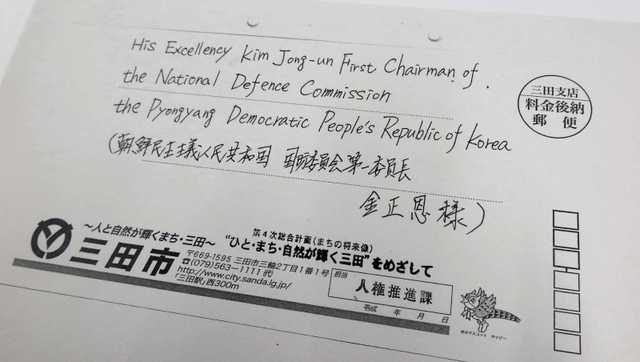 His Excellency Kim Jong-un First Chairman of
the National Defence Commission
the Pyongyang Democratic People's Republic of Korea
(朝鮮民主主義人民共和国 国防委員会第一委員長
金正恩様)
三田支店
料金後納
郵便
～人と自然が輝くまち・三田～
三田市
第4次総合計画(まちの将来像)
"ひと・まち・自然が輝く三田"をめざして
〒669-1595 三田市三輪2丁目1番1号
(079)563-1111 代
http://www.city.sanda.lg.jp/
「三田駅」西300m
担当
人権推進課
平成 年 月 日